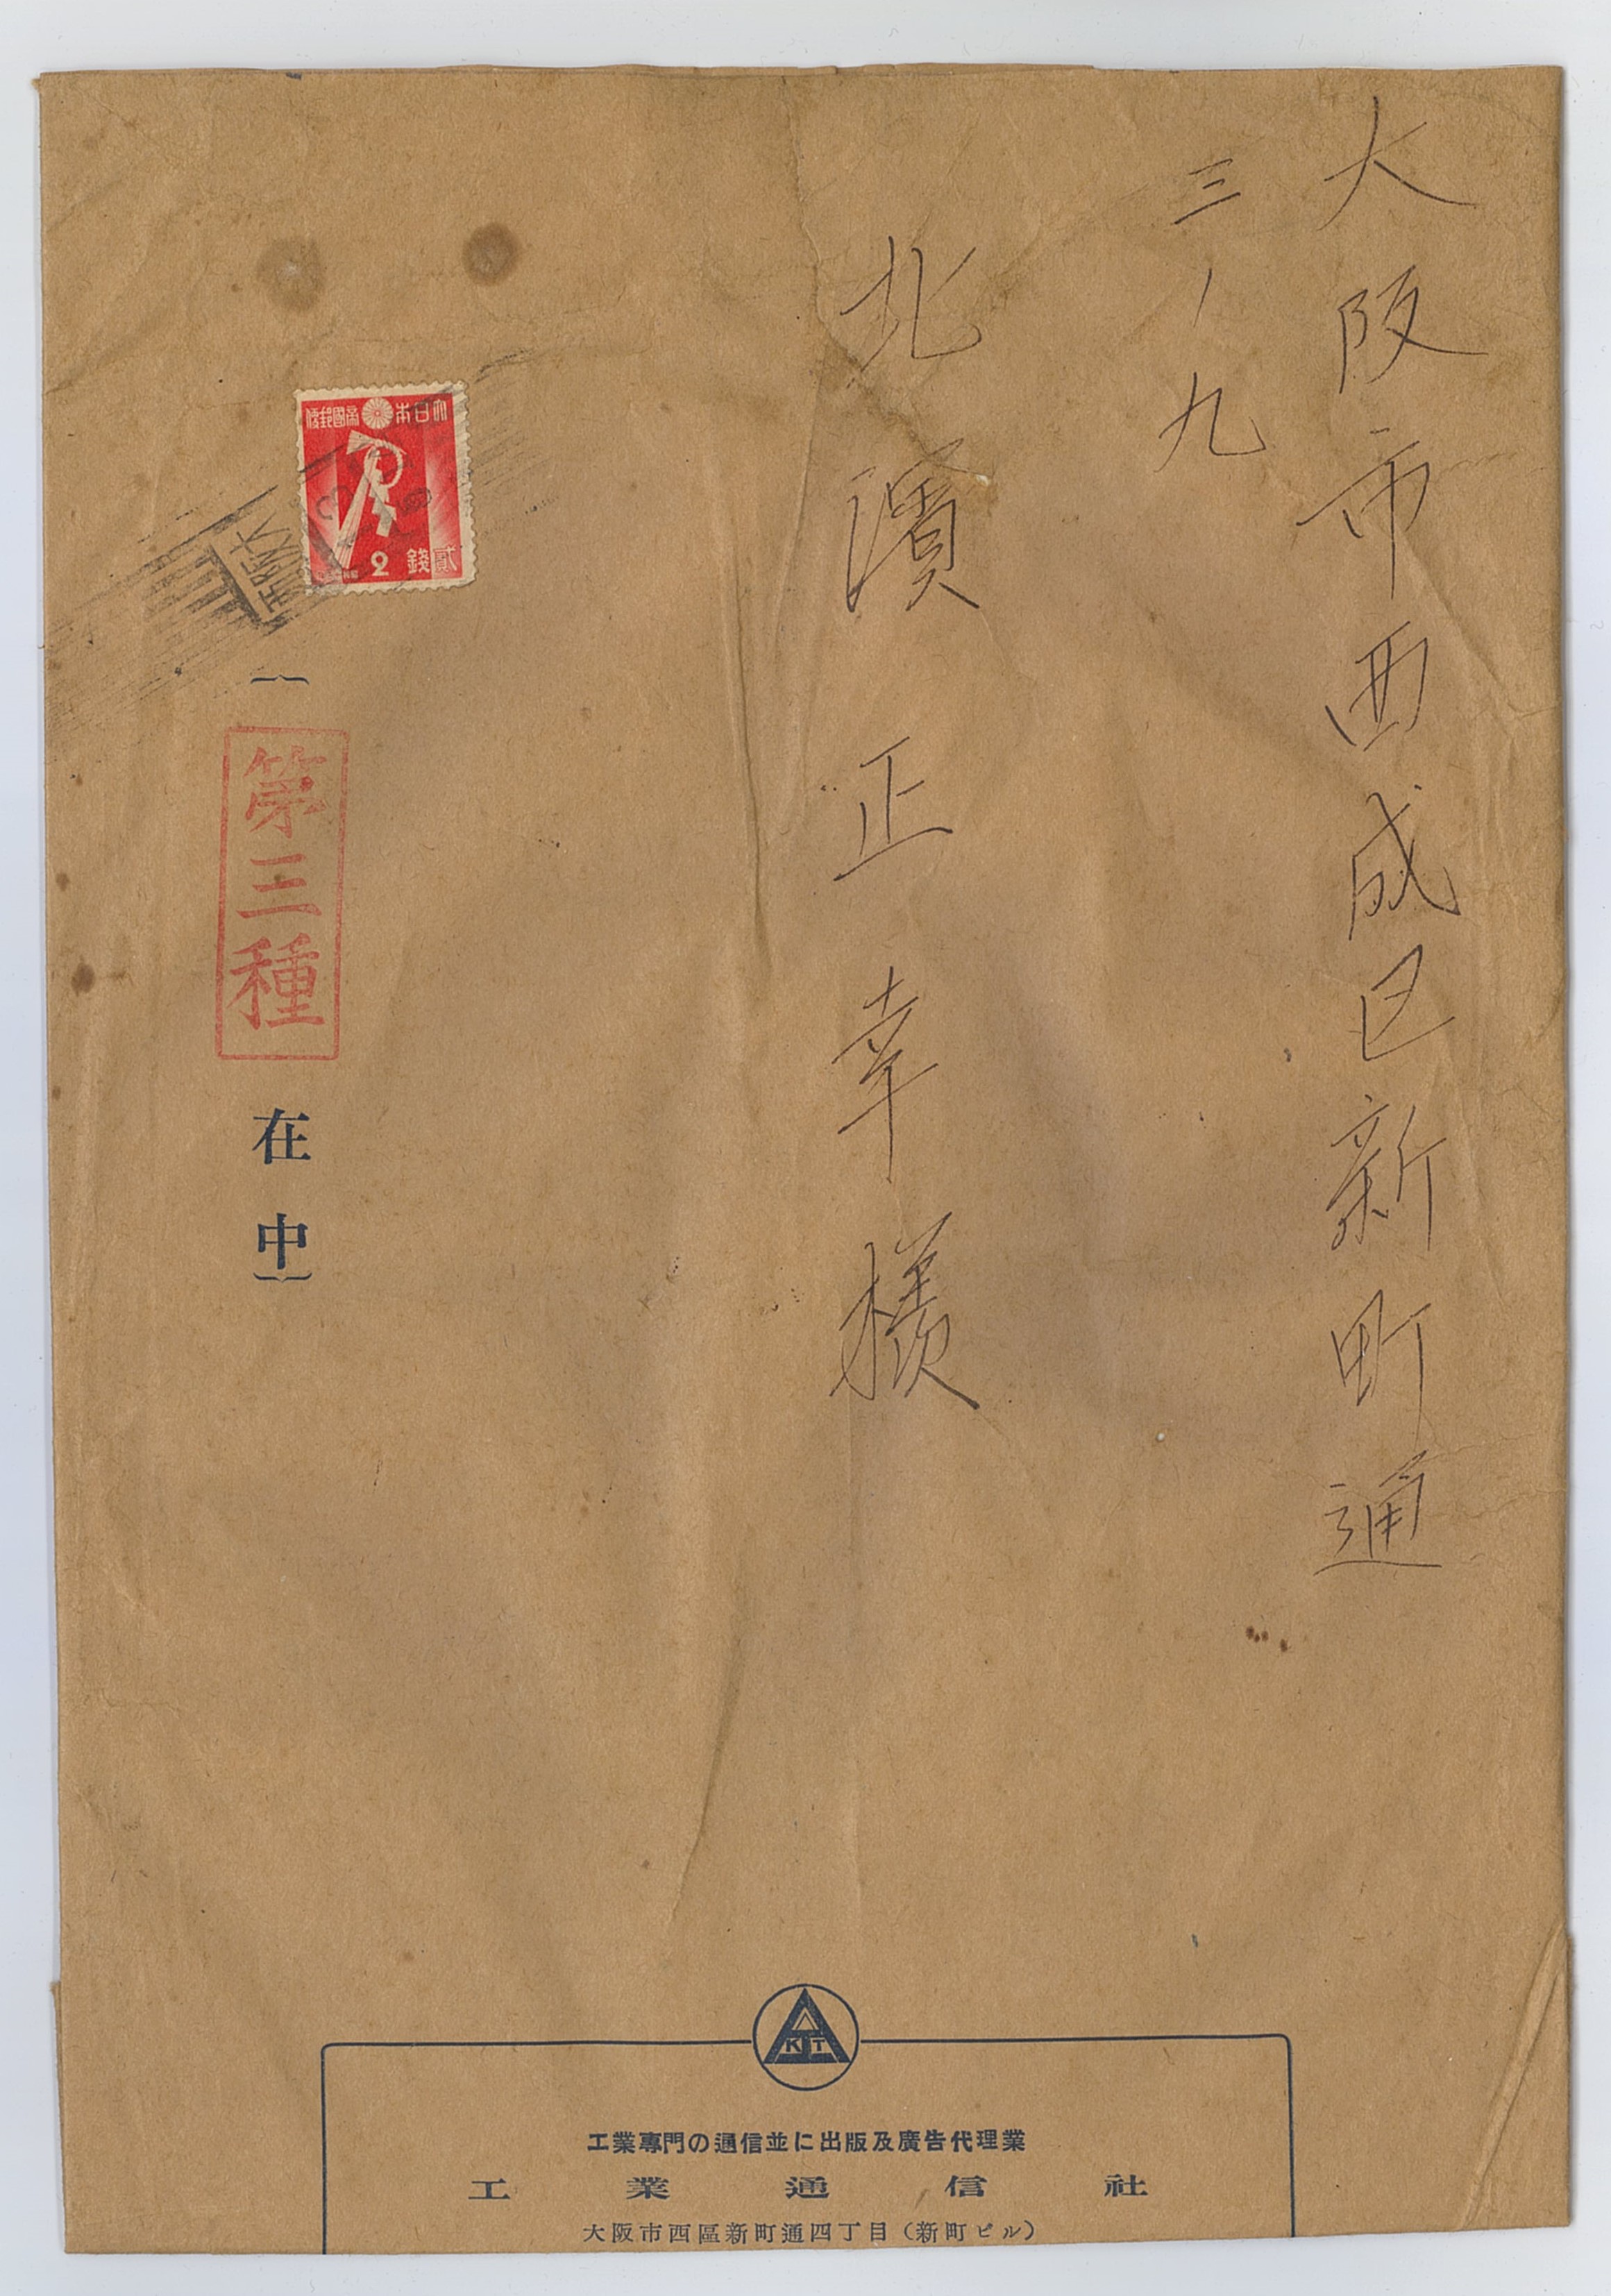 大阪市西成区新町通
三ノ九
北濱正幸様
大日本帝國郵便
2 錢貳
大阪
第三種
在中
KT
工業專門の通信並に出版及廣告代理業
工業通信社
大阪市西區新町通四丁目(新町ビル)